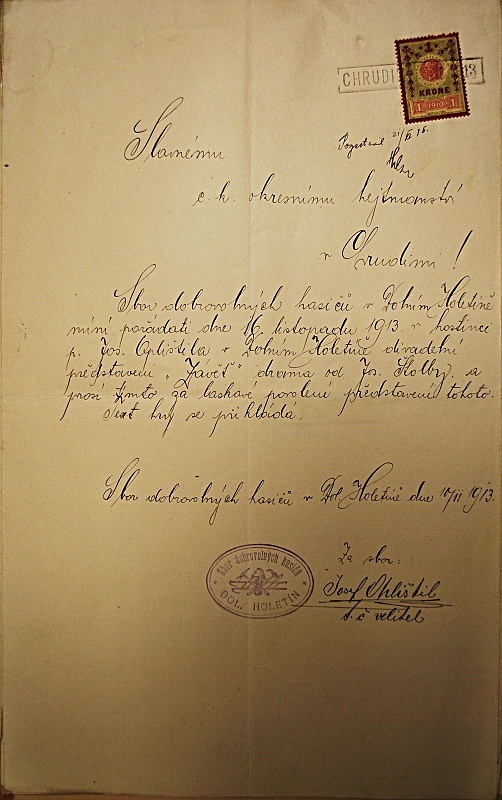 CHRUDI 13
1
KRONE
1 1910 1
Slavnému
c. k. okresnímu hejtmanství
v Chrudimi!
Sbor dobrovolných hasičů v Dolním Holetíně
míní pořádati dne 16. listopadu 1913. v hostinci
p. Jos. Oplištila v Dolním Holetíně divadelní
představení „Závěť" drama od Jos. Štolby. a
prosí tímto za laskavé povolení představení tohoto.
Text hry se přikládá.
Sbor dobrovolných hasičů v Dol. Holetíně dne 10/11 1913.
Za sbor:
Josef Oplištil
t. č velitel
Sbor dobrovolných hasičů
DOL. HOLETÍN